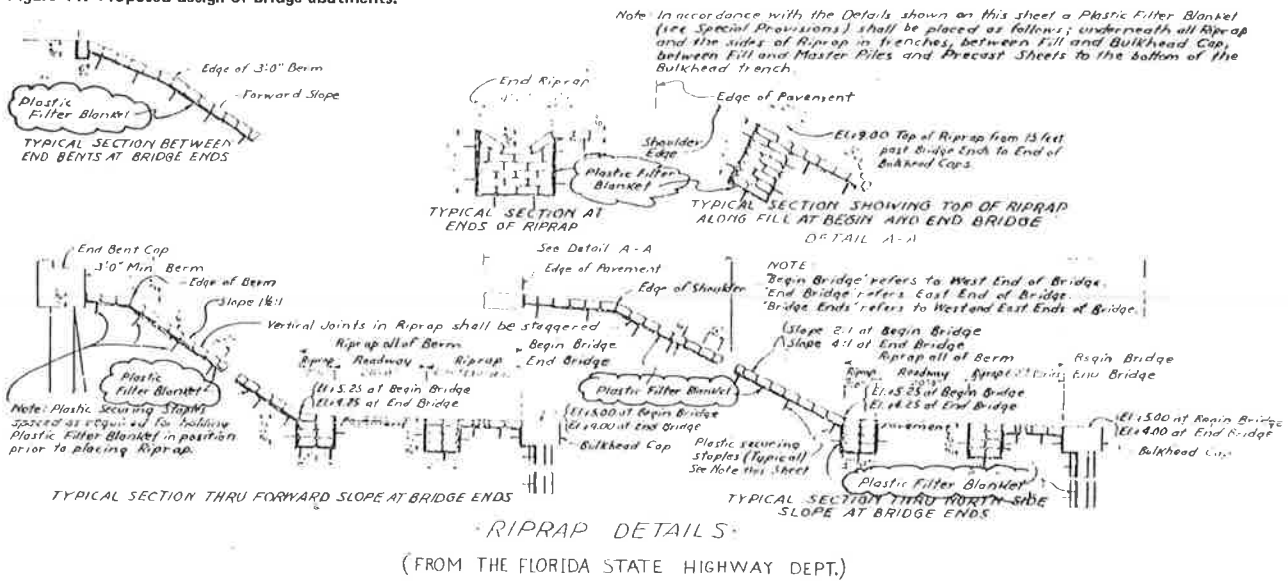 Note: In accordance with the Details shown on this sheet a Plastic Filter Blanket
(see Special Provisions) shall be placed as follows; underneath all Riprap
and the sides of Riprap in trenches, between Fill and Bulkhead Cap,
between Fill and Master Piles and Precast Sheets to the bottom of the
Bulkhead trench.
Edge of 3'0" Berm
Forward Slope
Plastic
Filter Blanket
TYPICAL SECTION BETWEEN
END BENTS AT BRIDGE ENDS
End Riprap
Plastic Filter
Blanket
TYPICAL SECTION AT
ENDS OF RIPRAP
Edge of Pavement
Shoulder
Edge
El. 9.00 Top of Riprap from 15 feet
past Bridge Ends to End of
Bulkhead Caps.
TYPICAL SECTION SHOWING TOP OF RIPRAP
ALONG FILL AT BEGIN AND END BRIDGE
DETAIL A-A
End Bent Cap
3'0" Min. Berm
Edge of Berm
Slope 1½:1
Vertical Joints in Riprap shall be staggered
Riprap all of Berm
Riprap Roadway Riprap
Begin Bridge
End Bridge
Plastic
Filter Blanket
El. 5.25 at Begin Bridge
El. 4.25 at End Bridge
Note: Plastic Securing Staples
spaced as required for holding
Plastic Filter Blanket in position
prior to placing Riprap.
Pavement
El. 5.00 at Begin Bridge
El. 4.00 at End Bridge
Bulkhead Cap
TYPICAL SECTION THRU FORWARD SLOPE AT BRIDGE ENDS
See Detail A-A
Edge of Pavement
Edge of Shoulder
NOTE:
'Begin Bridge' refers to West End of Bridge.
'End Bridge' refers East End of Bridge.
'Bridge Ends' refers to West and East Ends of Bridge.
Slope 2:1 at Begin Bridge
Slope 4:1 at End Bridge
Riprap all of Berm
Riprap Roadway Riprap
Begin Bridge
End Bridge
Plastic Filter Blanket
El. 5.25 at Begin Bridge
El. 4.25 at End Bridge
Plastic securing
staples (Typical)
See Note this Sheet
Pavement
El. 5.00 at Begin Bridge
El. 4.00 at End Bridge
Bulkhead Cap
Plastic Filter Blanket
TYPICAL SECTION THRU NORTH SIDE
SLOPE AT BRIDGE ENDS
RIPRAP DETAILS
(FROM THE FLORIDA STATE HIGHWAY DEPT.)